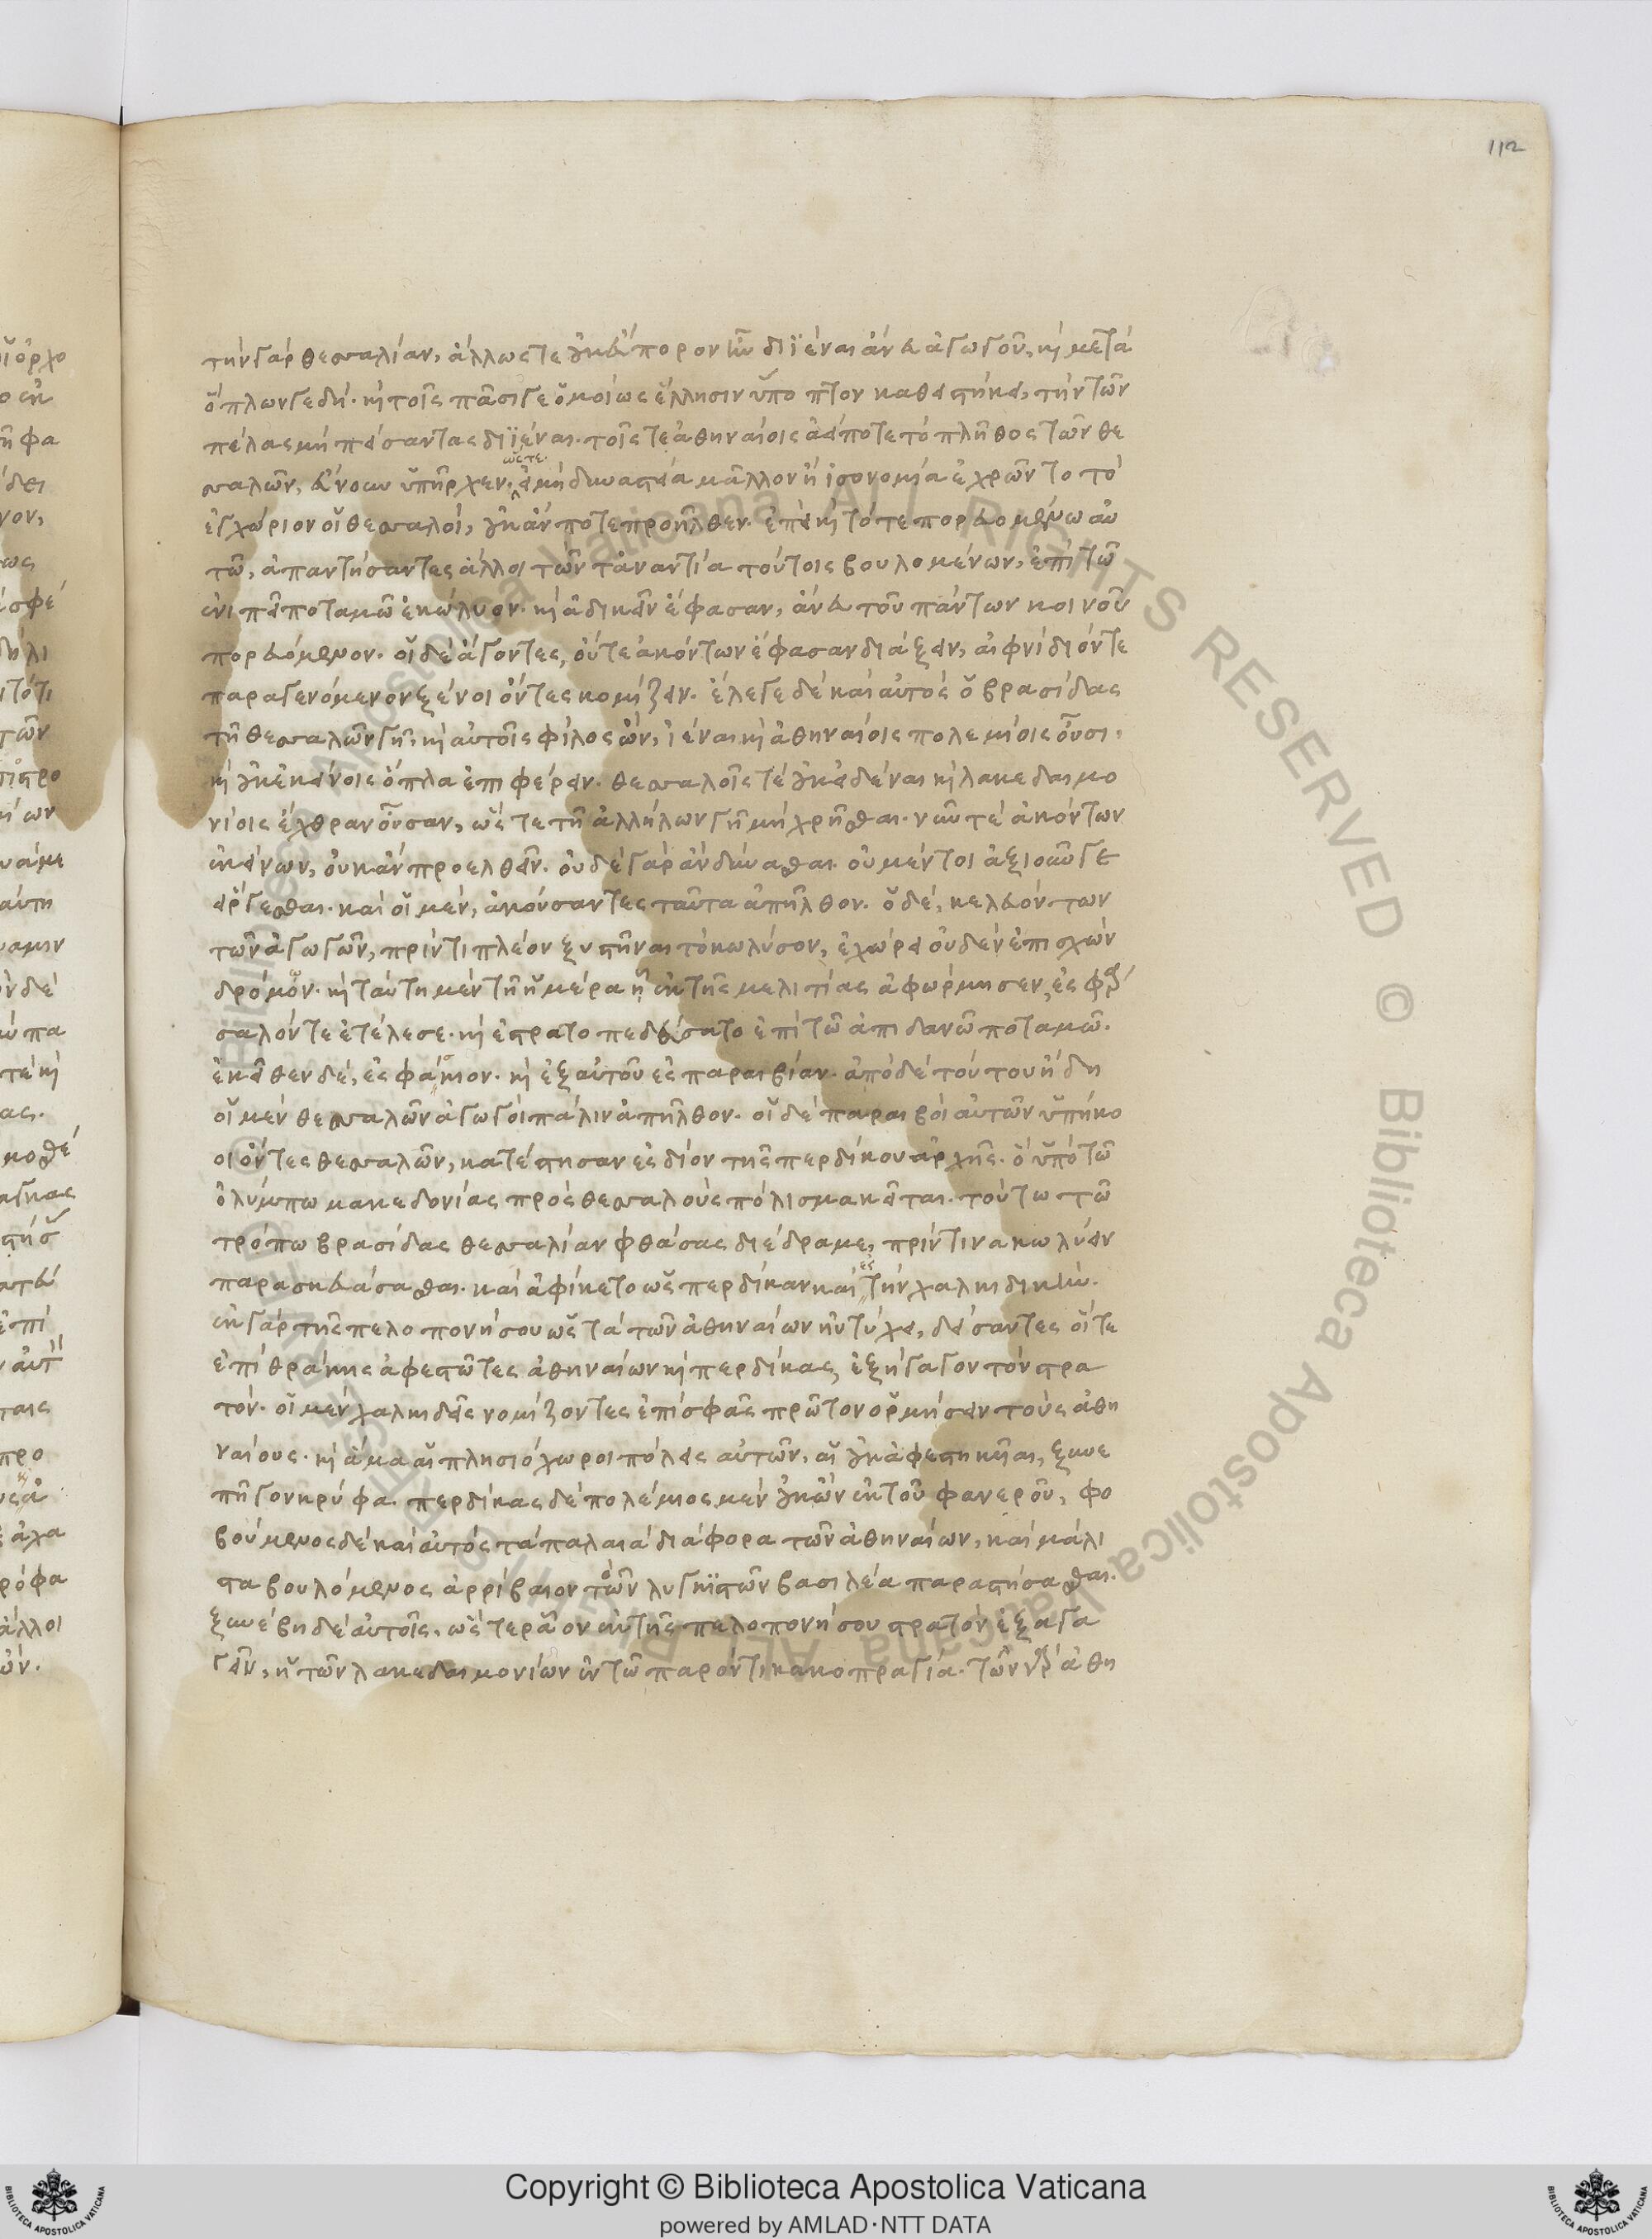 112
τὴν γὰρ θεσσαλίαν, ἄλλως τε οὐκ εὔπορον ἦν διϊέναι ἄνευ ἀγωγοῦ, καὶ μετὰ
ὅπλων γε δή. καὶ τοῖς πᾶσί γε ὁμοίως ἕλλησιν ὕποπτον καθειστήκει, τὴν τῶν
πέλας μὴ πείσαντας διϊέναι. τοῖς τε ἀθηναίοις ἀεί ποτε τὸ πλῆθος τῶν θε
σσαλῶν, εὔνουν ὑπῆρχεν. ὥστε εἰ μὴ δυναστεία μᾶλλον ἢ ἰσονομία ἐχρῶντο τὸ
ἐγχώριον οἱ θεσσαλοί, οὐκ ἄν ποτε προῆλθεν. ἐπεὶ καὶ τότε πορευομένω αὐ
τῶ, ἀπαντήσαντες ἄλλοι τῶν τἀναντία τούτοις βουλομένων, ἐπὶ τῶ
ἐνιπεῖ ποταμῶ ἐκώλυον. καὶ ἀδικεῖν ἔφασαν, ἄνευ τοῦ πάντων κοινοῦ
πορευόμενον. οἱ δὲ ἄγοντες, οὔτε ἀκόντων ἔφασαν διάξειν, αἰφνίδιόν τε
παραγενόμενον ξένοι ὄντες κομίζειν. ἔλεγε δὲ καὶ αὐτὸς ὁ βρασίδας
τῆ θεσσαλῶν γῆ, καὶ αὐτοῖς φίλος ὤν, ἰέναι καὶ ἀθηναίοις πολεμίοις οὖσι.
καὶ οὐκ ἐκείνοις ὅπλα ἐπιφέρειν. θεσσαλοῖς τὲ οὐκ εἰδέναι καὶ λακεδαιμο
νίοις ἔχθραν οὖσαν, ὥστε τῆ ἀλλήλων γῆ μὴ χρῆσθαι. νῦν τὲ ἀκόντων
ἐκείνων, οὐκ ἂν προελθεῖν. οὐδὲ γὰρ ἂν δύνασθαι. οὐ μέντοι ἀξιοῦν γε
εἴργεσθαι. καὶ οἱ μὲν, ἀκούσαντες ταῦτα ἀπῆλθον. ὁ δὲ, κελευόντων
τῶν ἀγωγῶν, πρίν τι πλέον ξυστῆναι τὸ κωλύσον, ἐχώρει οὐδὲν ἐπισχὼν
δρόμον. καὶ ταύτη μὲν τῆ ἡμέρα ἧ ἐκ τῆς μελιτίας ἀφώρμησεν, ἐς φάρ
σαλόν τε ἐτέλεσε. καὶ ἐστρατοπεδεύσατο ἐπὶ τῶ ἀπιδανῶ ποταμῶ.
ἐκεῖθεν δὲ, ἐς φάκιον. καὶ ἐξ αὐτοῦ ἐς παραιβίαν. ἀπὸ δὲ τούτου ἤδη
οἱ μὲν θεσσαλῶν ἀγωγοὶ πάλιν ἀπῆλθον. οἱ δὲ παραιβοὶ αὐτῶν ὑπήκο
οι ὄντες θεσσαλῶν, κατέστησαν ἐς δίον τῆς περδίκου ἀρχῆς. ὃ ὑπὸ τῶ
ὀλύμπω μακεδονίας πρὸς θεσσαλοὺς πόλισμα κεῖται. τούτω τῶ
τρόπω βρασίδας θεσσαλίαν φθάσας διέδραμε, πρίν τινα κωλύειν
παρασκευάσασθαι. καὶ ἀφίκετο ὡς περδίκαν καὶ ἐς τὴν χαλκιδικήν.
ἐκ γὰρ τῆς πελοπονήσου ὡς τὰ τῶν ἀθηναίων ηὐτύχει, δείσαντες οἵ τε
ἐπὶ θράκης ἀφεστῶτες ἀθηναίων καὶ περδίκας, ἐξήγαγον τὸν στρα
τόν. οἱ μὲν χαλκιδεῖς νομίζοντες ἐπὶ σφᾶς πρῶτον ὁρμήσειν τοὺς ἀθη
ναίους. καὶ ἅμα αἱ πλησιόχωροι πόλεις αὐτῶν, αἱ οὐκ ἀφεστηκυῖαι, ξυνε
πῆγον κρύφα. περδίκας δὲ πολέμιος μὲν οὐκ ὢν ἐκ τοῦ φανεροῦ, φο
βούμενος δὲ καὶ αὐτὸς τὰ παλαιὰ διάφορα τῶν ἀθηναίων, καὶ μάλι
στα βουλόμενος ἀρρίβαιον τὸν λυγκϊστῶν βασιλέα παραστήσασθαι.
ξυνέβη δὲ αὐτοῖς. ὥστε ῥᾶον ἐκ τῆς πελοπονήσου στρατὸν ἐξαγα
γεῖν, ἡ τῶν λακεδαιμονίων ἐν τῶ παρόντι κακοπραγία. τῶν γὰρ ἀθη